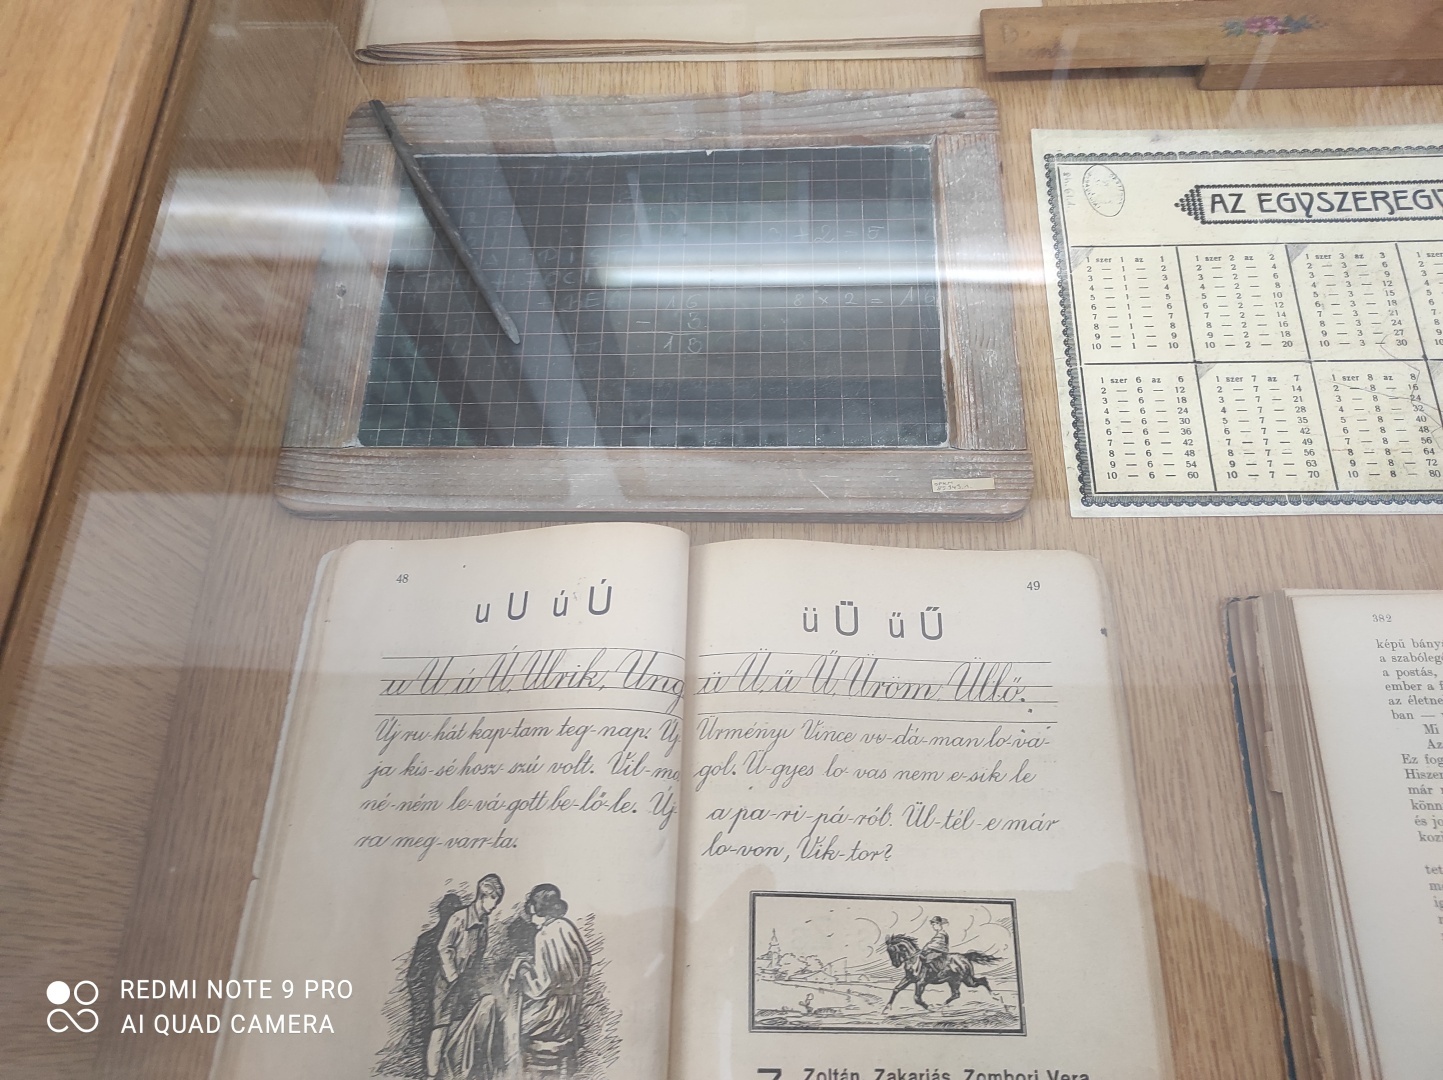 - 2 = 5
8 × 2 = 16
- 3
13
AZ EGYSZEREGY
1 szer 1 az 1
2 — 1 — 2
3 — 1 — 3
4 — 1 — 4
5 — 1 — 5
6 — 1 — 6
7 — 1 — 7
8 — 1 — 8
9 — 1 — 9
10 — 1 — 10
1 szer 2 az 2
2 — 2 — 4
3 — 2 — 6
4 — 2 — 8
5 — 2 — 10
6 — 2 — 12
7 — 2 — 14
8 — 2 — 16
9 — 2 — 18
10 — 2 — 20
1 szer 3 az 3
2 — 3 — 6
3 — 3 — 9
4 — 3 — 12
5 — 3 — 15
6 — 3 — 18
7 — 3 — 21
8 — 3 — 24
9 — 3 — 27
10 — 3 — 30
1 szer 6 az 6
2 — 6 — 12
3 — 6 — 18
4 — 6 — 24
5 — 6 — 30
6 — 6 — 36
7 — 6 — 42
8 — 6 — 48
9 — 6 — 54
10 — 6 — 60
1 szer 7 az 7
2 — 7 — 14
3 — 7 — 21
4 — 7 — 28
5 — 7 — 35
6 — 7 — 42
7 — 7 — 49
8 — 7 — 56
9 — 7 — 63
10 — 7 — 70
1 szer 8 az 8
2 — 8 — 16
3 — 8 — 24
4 — 8 — 32
5 — 8 — 40
6 — 8 — 48
7 — 8 — 56
8 — 8 — 64
9 — 8 — 72
10 — 8 — 80
48
u U ú Ú
u U ú Ú, Ulrik, Ung
Új ru-hát kap-tam teg-nap. Új
ja kis-sé hosz-szú volt. Vil-ma
né-ném le-vá-gott be-lő-le. Új-
ra meg-varr-ta.
49
ü Ü ű Ű
ü Ü, ű Ű, Üröm, Üllő.
Ürményi Vince vi-dá-man lo-va-
gol. Ü-gyes lo-vas nem e-sik le
a pa-ri-pá-ról. Ül-tél-e már
lo-von, Vik-tor?
Z Zoltán, Zakariás, Zombori Vera
382
képü bány
a szabóleg
a postás,
ember a f
az életne
ban —
Mi
Az
Ez fog
Hiszen
már
könn
és jo
koz
REDMI NOTE 9 PRO
AI QUAD CAMERA